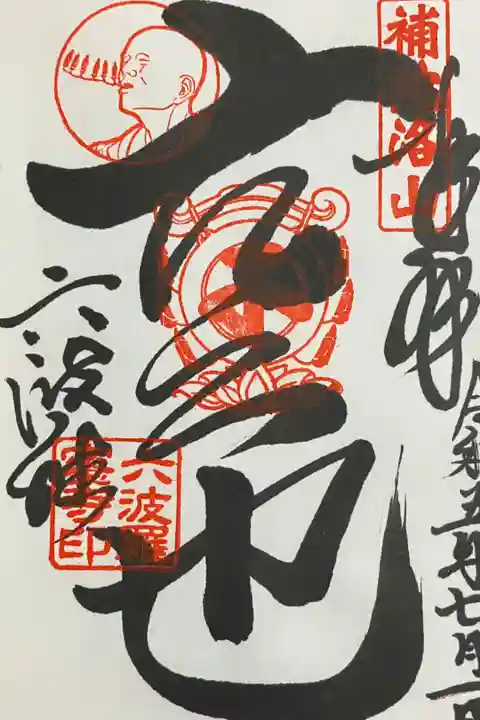 奉拝
補陀洛山
令和五年七月一日
空也
六波羅
六波羅蜜寺印